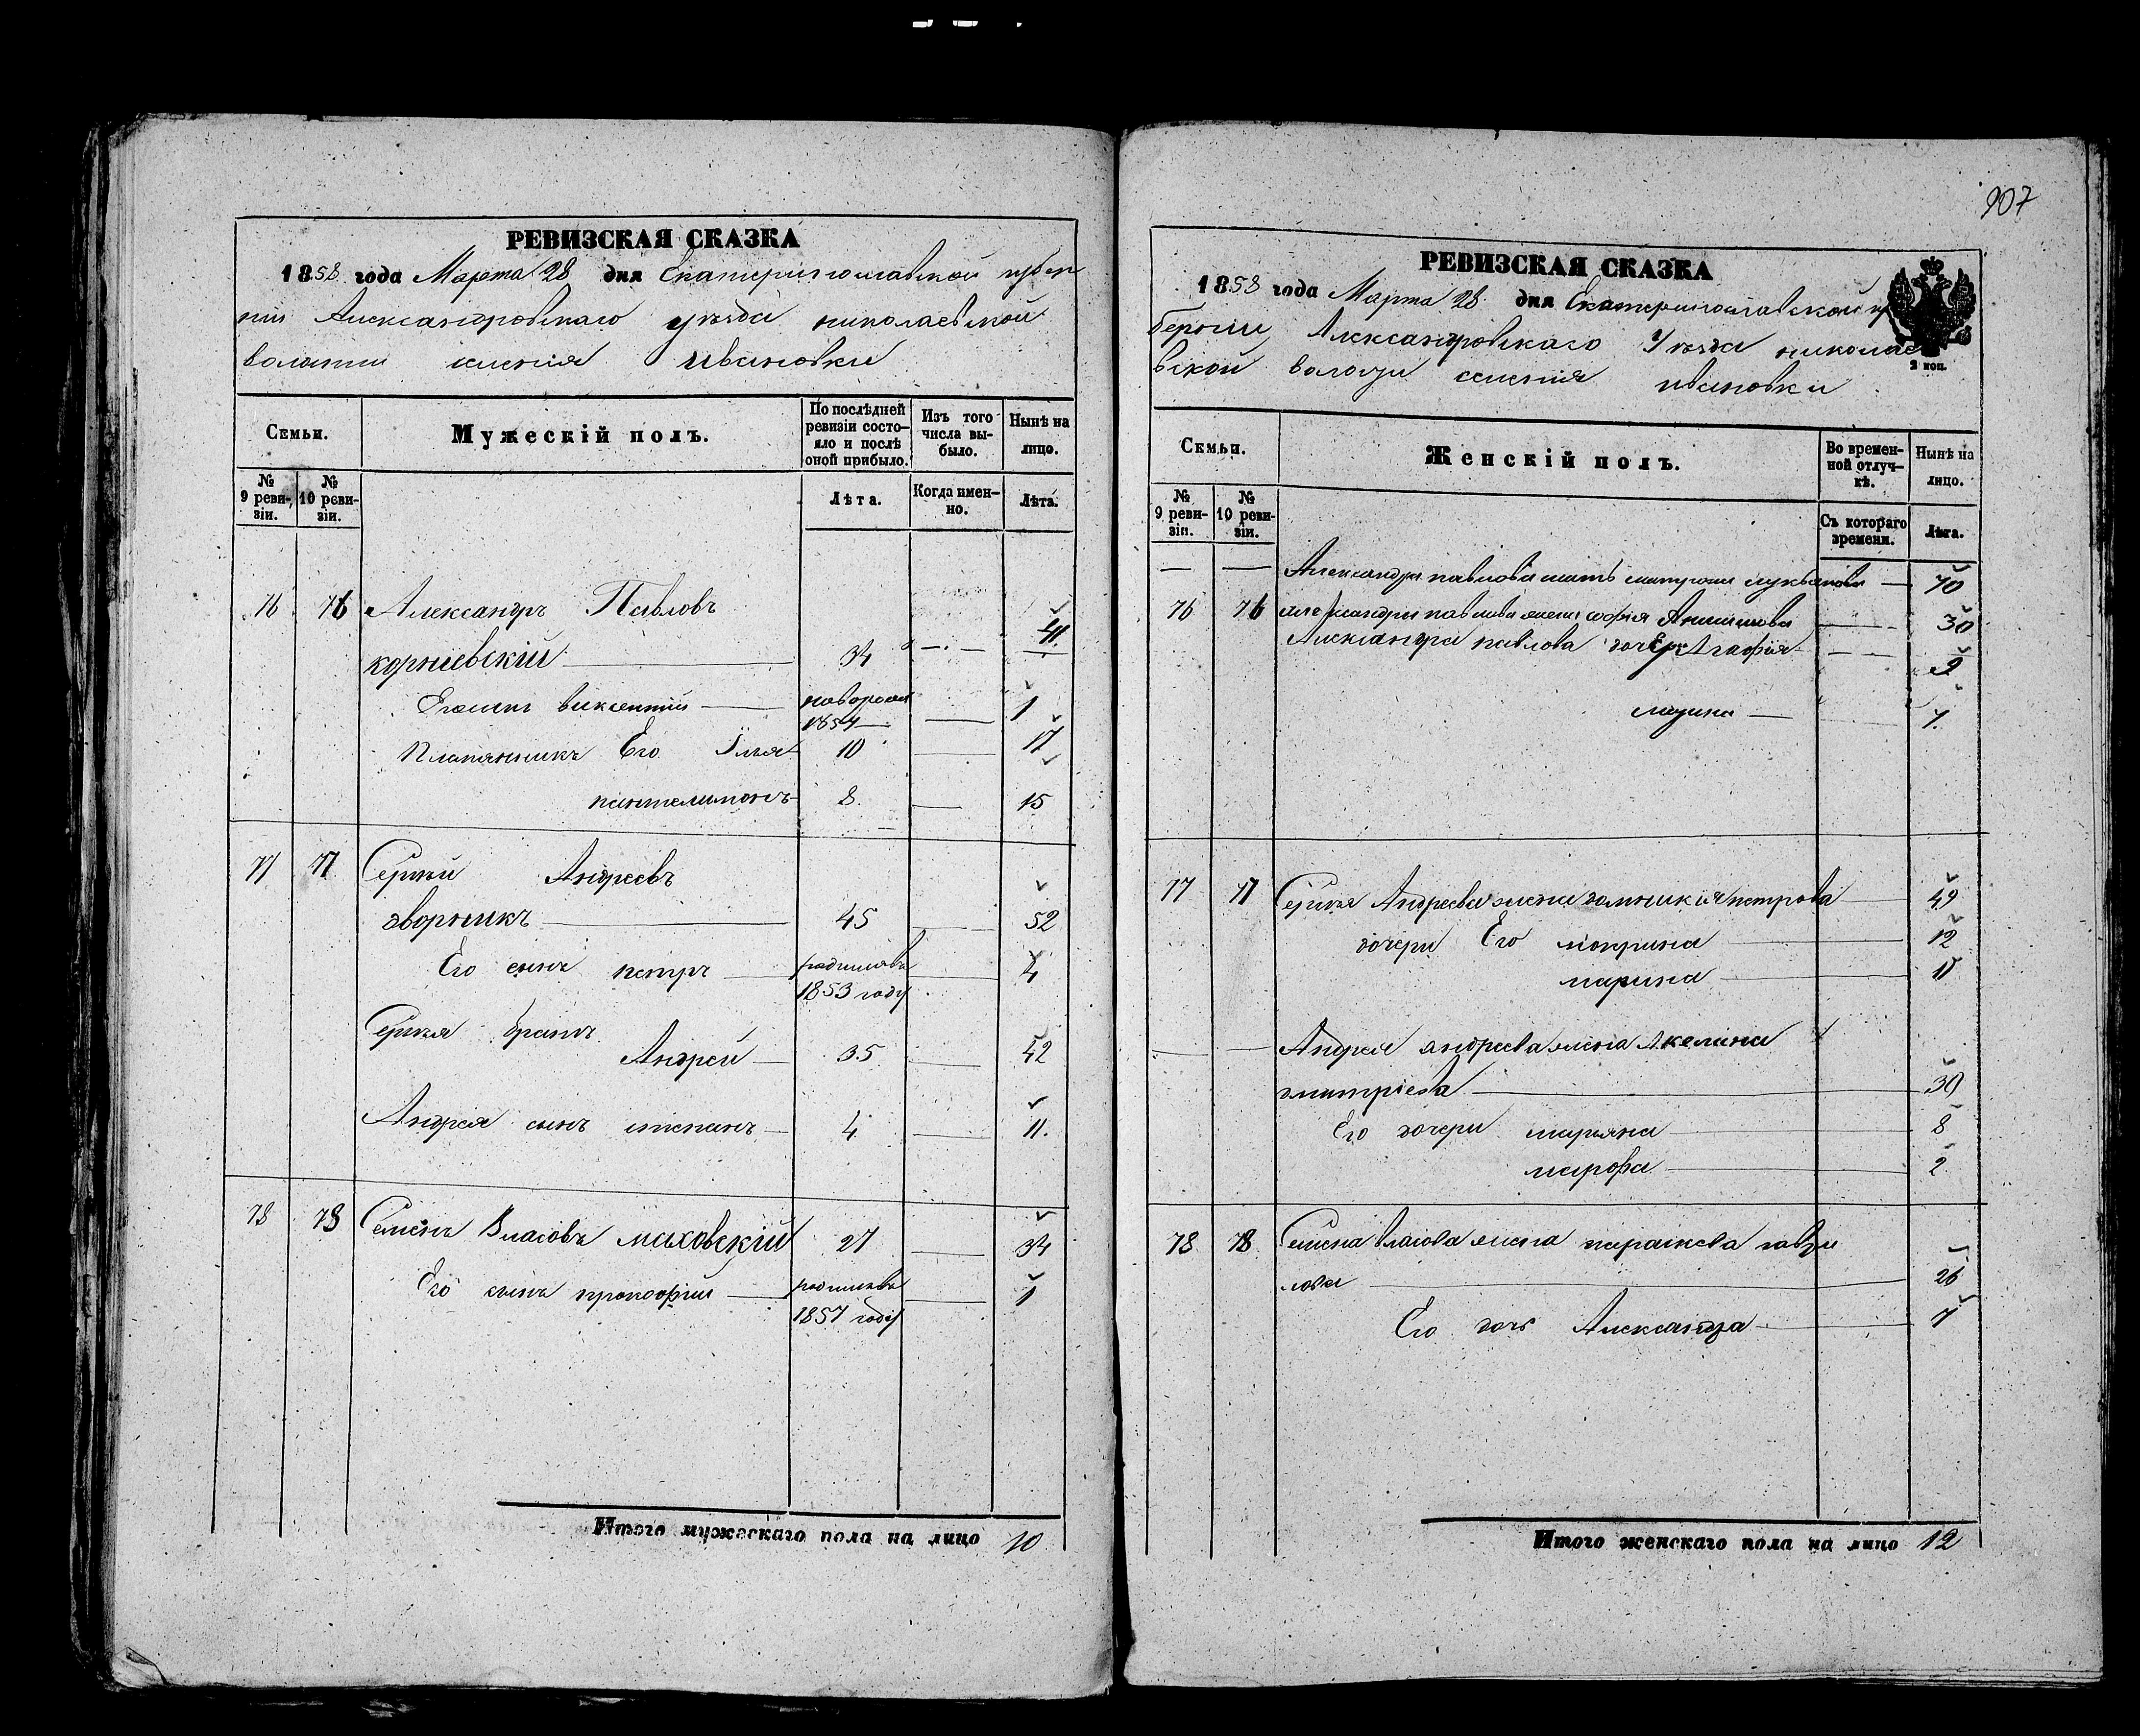 РЕВИЗСКАЯ СКАЗКА
1858 года Марта 28 дня Екатеринославской губер
нiи Александровскаго уезда николаевской
волости селения ивановки
Семьи.
Мужескiй полъ.
По послѣдней ревизiи состо-яло и послѣ оной прибыло.
Изъ того числа вы-было.
Нынѣ на лицо.
№ 9 реви-зiи.
№ 10 реви-зiи.
Лѣта.
Когда имен-но.
Лѣта.
76 76 Александръ Павловъ
корниевскiй 34 41
викентий 1
1857
Племянникъ Его Илья 10 17
пантелимонъ 8 15
77 77 Сергѣй Андреевъ
дворникъ 45 52
Его сынъ петръ родился въ 4
1853 году
Сергѣя братъ
Андрей 35 42
Андрея сынъ степанъ 4 11.
78 78 Семенъ Власовъ маховскiй 27 34
Его сынъ прокофий родился въ 1
1857 году
Итого мужескаго пола на лицо 10
907
РЕВИЗСКАЯ СКАЗКА
1858 года Марта 28 дня Екатеринославской гу
бернии Александровскаго Уезда николае
вской волости селения ивановки
2 коп.
Семьи.
Женскiй полъ.
Во времен-ной отлуч-кѣ.
Нынѣ на лицо.
№ 9 реви-зiи.
№ 10 реви-зiи.
Съ котораго времени.
Лѣта.
Александра павлова мать матрона лукьянова 70
76 76 александра павлова жена софия 30
Александра павлова дочери Агафия 9
7
77 77 Сергѣя Андреева жена домникия петрова 49
дочери Его мокрина 12
марина 11
Андрея андреева жена Акелина
дмитрiева 30
Его дочери марьяна 8
марфа 2
78 78 Семена власова жена параскева гаври
лова 26
Его дочь Александра 7
Итого женскаго пола на лицо 12